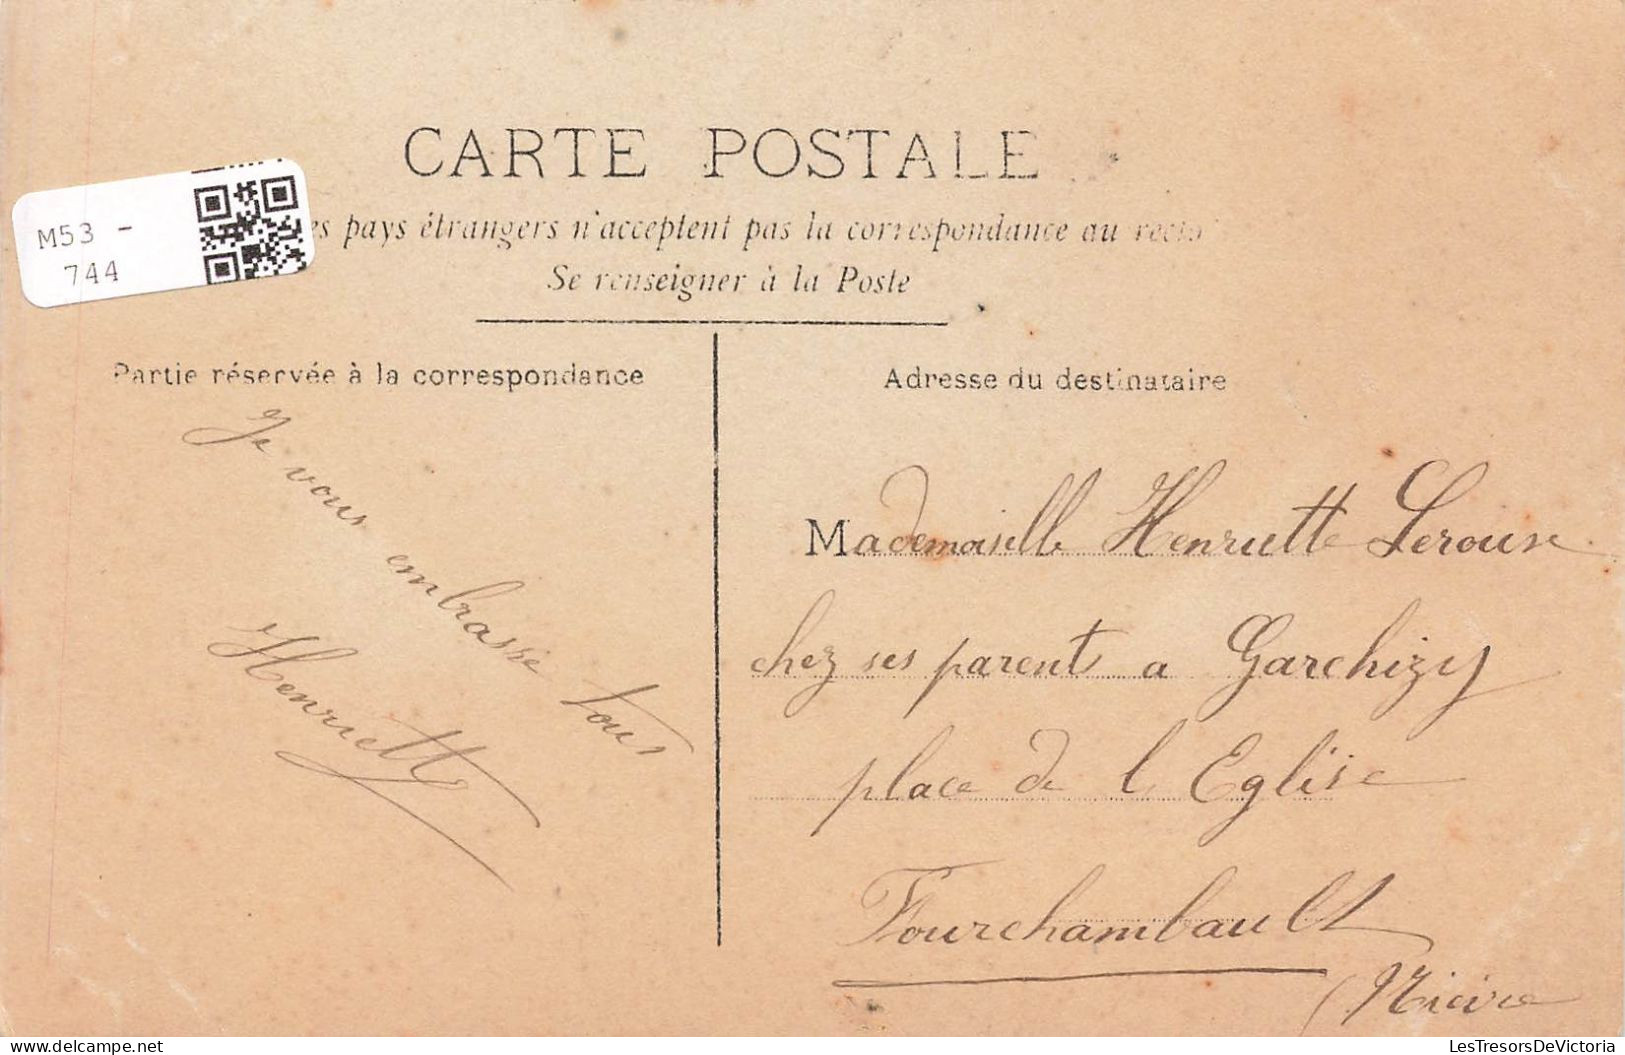 CARTE POSTALE
M53 -
744
es pays étrangers n'acceptent pas la correspondance au recto
Se renseigner à la Poste
Partie réservée à la correspondance
Adresse du destinataire
Je vous embrasse tous
Henriette
Mademoiselle Henriette
chez ses parents a Garchizy
place de l Eglise
Fourchambault
(Nièvre
LesTresorsDeVictoria